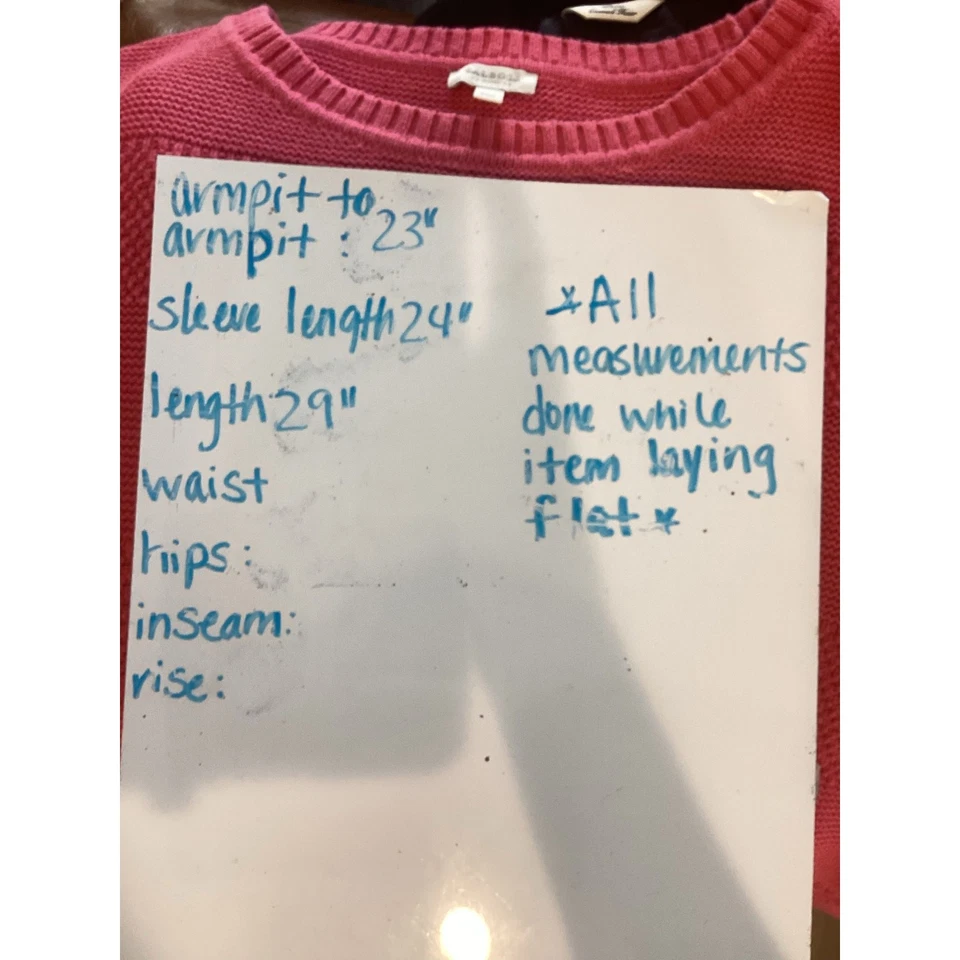 TALBOTS
armpit to
armpit : 23"
sleeve length 24"
length 29"
waist
hips:
inseam:
rise:
*All
measurements
done while
item laying
flat*